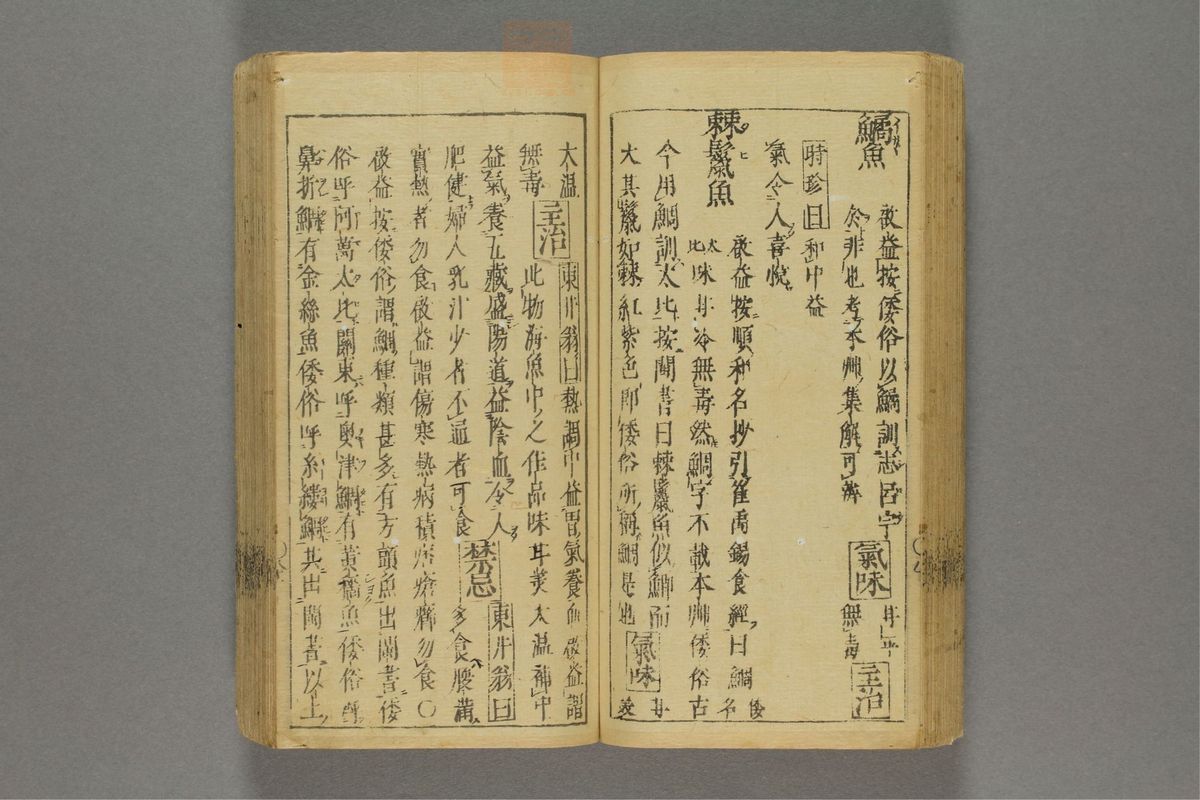 鱊魚
啟益按倭俗以鱊訓志呂宇
於非也考本艸集解可辨
氣味
甘平
無毒
主治
時珍曰和中益
氣令人喜悅
棘鬣魚
啟益按順和名抄引崔禹錫食經曰鯛
倭名
太比
味甘冷無毒然鯛字不載本艸倭俗古
今用鯛訓太比按閩書曰棘鬣魚似鯽而
大其鬣如棘紅紫色即倭俗所稱鯛是也
氣味
甘美
大温
無毒
東井翁曰熱調中益胃氣養血啟益謂
主治
此物海魚中之佳品味甘美大温補中
益氣養五藏盛陽道益陰血令人
肥健婦人乳汁少者不通者可食
禁忌
東井翁曰
多食腰
實熱者勿食啟益謂傷寒熱病積勿食〇
啟益按倭俗謂鯛種類甚多有方頭魚出閩書倭
俗呼阿萬太比關東呼奥津鯛有黃穡魚倭俗呼
鼻折鯛有金絲魚倭俗呼糸縷鯛共出閩書以上